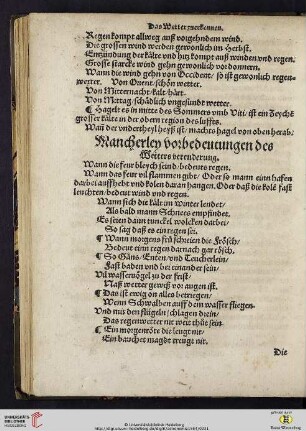 Das Wetter zuerkennen.
Regen kompt allweg auß vorgehndem wind.
Die grossen wind werden gewonlich im Herbst.
Entzündung der kälte vnd hitz kompt auß winden vnd regen.
Grosse starcke wind gehn gewonlich vor donnern.
Wann die wind gehn von Occident/ so ist gewonlich regen-
wetter. Von Orient/ schön wetter.
Von Mitternacht/ kalt/ hart.
Von Mittag/ schädlich vngesundt wetter.
¶ Hagelt es in mitte des Sommers vmb Viti/ ist ein zeychẽ
grosser kälte in der obern region des luffts.
Wañ der vndertheyl heyß ist/ machts hagel von oben herab.
Mancherley vorbedeutungen des
Wetters verenderung.
Wann die feur bleych seind/ bedeuts regen.
Wann das feur vil flammen gibt/ Oder so mann einn haffen
darbei auffhebt vnd kolen daran hangen. Oder daß die kolẽ fast
leuchten/ bedeut wind vnd regen.
Wann sich die kält im winter lendet/
Als bald mann Schnees empfindet.
Es seien dann tunckel wolcken darbei/
So sag daß es ein regen sei.
¶ Wann morgens frü schreien die Frösch/
Bedeut einn regen darnach gar rösch.
¶ So Gäns/ Enten/ vnd Teucherlein/
Fast baden vnd bei einander sein/
Vil wasservögel zu der frist/
Naß wetter gewiß vor augen ist.
¶ Das ist ewig on alles betriegen/
Wenn Schwalben auff dem wasser fliegen.
Vnd mit den flügeln schlagen drein/
Das regenwetter nit weit thüt sein.
¶ Ein morgenröte die leuget nit/
Ein bauchet magdt treugt nit.
Die
UNIVERSITÄTS-
BIBLIOTHEK
HEIDELBERG
© Universitätsbibliothek Heidelberg